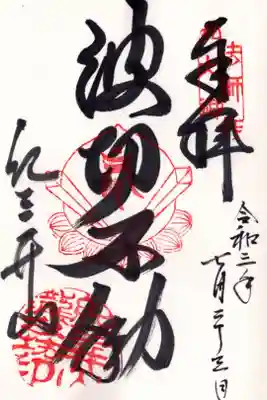 奉拝
令和二年七月二十三日
波切不動
紀三井寺